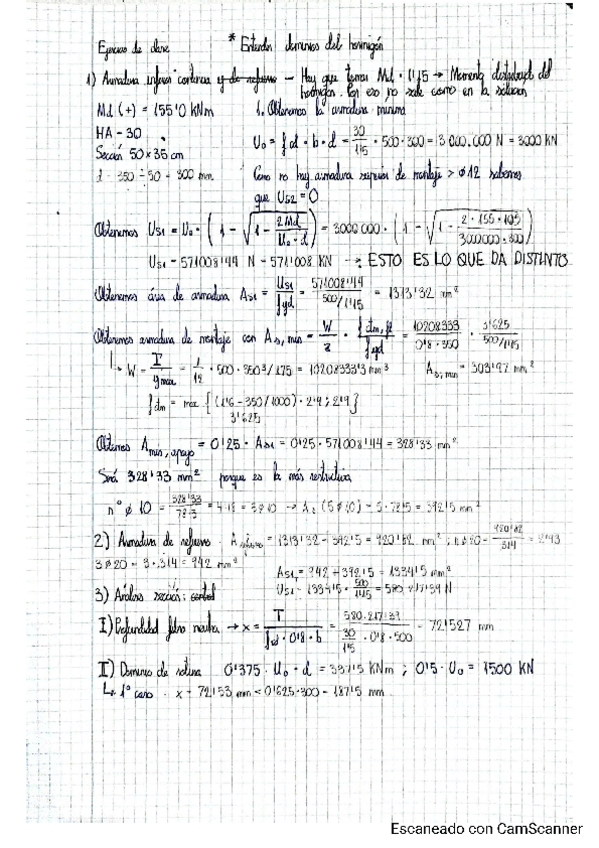 Ejercicio de clase * Entender dominios del hormigón
1) Armadura inferior continua y de refuerzo - Hay que tomar Md · 1'15 → Momento del
hormigón. Por eso no sale como en la solución
Md (+) = 155'0 kNm 1. Obtenemos la armadura mínima
HA - 30 U₀ = fcd · b · d = 30/1'5 · 500 · 300 = 3 000.000 N = 3000 KN
Sección 50 x 35 cm
d = 350 - 50 = 300 mm Como no hay armadura superior de montaje > ø 12 sabemos
que Us2 = 0
Obtenemos Us1 = U₀ · (1 - √(1 - 2Md/(U₀ · d))) = 3000000 · (1 - √(1 - 2 · 155 · 10⁶/(3000000 · 300)))
Us1 = 571008'44 N = 571'008 KN → ESTO ES LO QUE DA DISTINTO
Obtenemos área de armadura As1 = Us1/fyd = 571008'44/(500/1'15) = 1313'32 mm²
Obtenemos armadura de montaje con As,min = W/z · fctm,fl/fyd = 10208333/(0'8 · 350) · 3'625/(500/1'15)
↳ W = I/ymax = 1/12 · 500 · 350³/175 = 10208333'3 mm³ As,min = 303'97 mm²
fctm = max {(1'6 - 350/1000) · 2'9 ; 2'9}
3'625
Obtenemos A min, apoyo = 0'25 · As1 = 0'25 · 571008'44 = 328'33 mm²
Será 328'33 mm² porque es la más restrictiva
nº ø 10 = 328'33/78'5 = 4'18 = 5 ø 10 → As (5 ø 10) = 5 · 78'5 = 392'5 mm²
2) Armadura de refuerzo - A refuerzo = 1313'32 - 392'5 = 920'82 mm² ; nø20 = 920'82/314 = 2'93
3 ø 20 = 3 · 314 = 942 mm²
As1 = 942 + 392'5 = 1334'5 mm²
3) Análisis sección: Us1 = 1334'5 · 500/1'15 = 580.217'39 N
I) Profundidad fibra neutra → x = T/(fcd · 0'8 · b) = 580.217'39/(30/1'5 · 0'8 · 500) = 72'1527 mm
I) Dominio de rotura 0'375 · U₀ · d = 337'5 KNm ; 0'5 · U₀ = 1500 KN
↳ 1º caso x = 72'153 mm < 0'625 · 300 = 187'5 mm
Escaneado con CamScanner